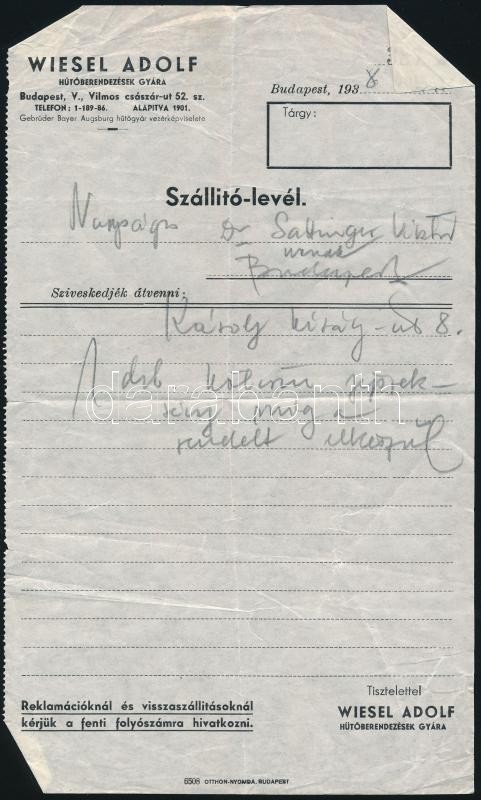 WIESEL ADOLF
HŰTŐBERENDEZÉSEK GYÁRA
Budapest, V., Vilmos császár-ut 52. sz.
TELEFON: 1-189-86. ALAPITVA 1901.
Gebrüder Bayer Augsburg hűtőgyár vezérképviselete
Budapest, 1938
Tárgy:
Szállitó-levél.
Nagyságos Dr Sattinger
urnak
Budapest
Sziveskedjék átvenni:
Károly király-út 8.
1 drb
míg a
rendelt elkészül
darabanth
Reklamációknál és visszaszállitásoknál
kérjük a fenti folyószámra hivatkozni.
Tisztelettel
WIESEL ADOLF
HŰTŐBERENDEZÉSEK GYÁRA
6508 OTTHON-NYOMDA, BUDAPEST